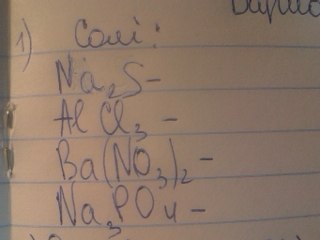 1) Солі:
Na₂S –
AlCl₃ –
Ba(NO₃)₂ –
Na₃PO₄ –